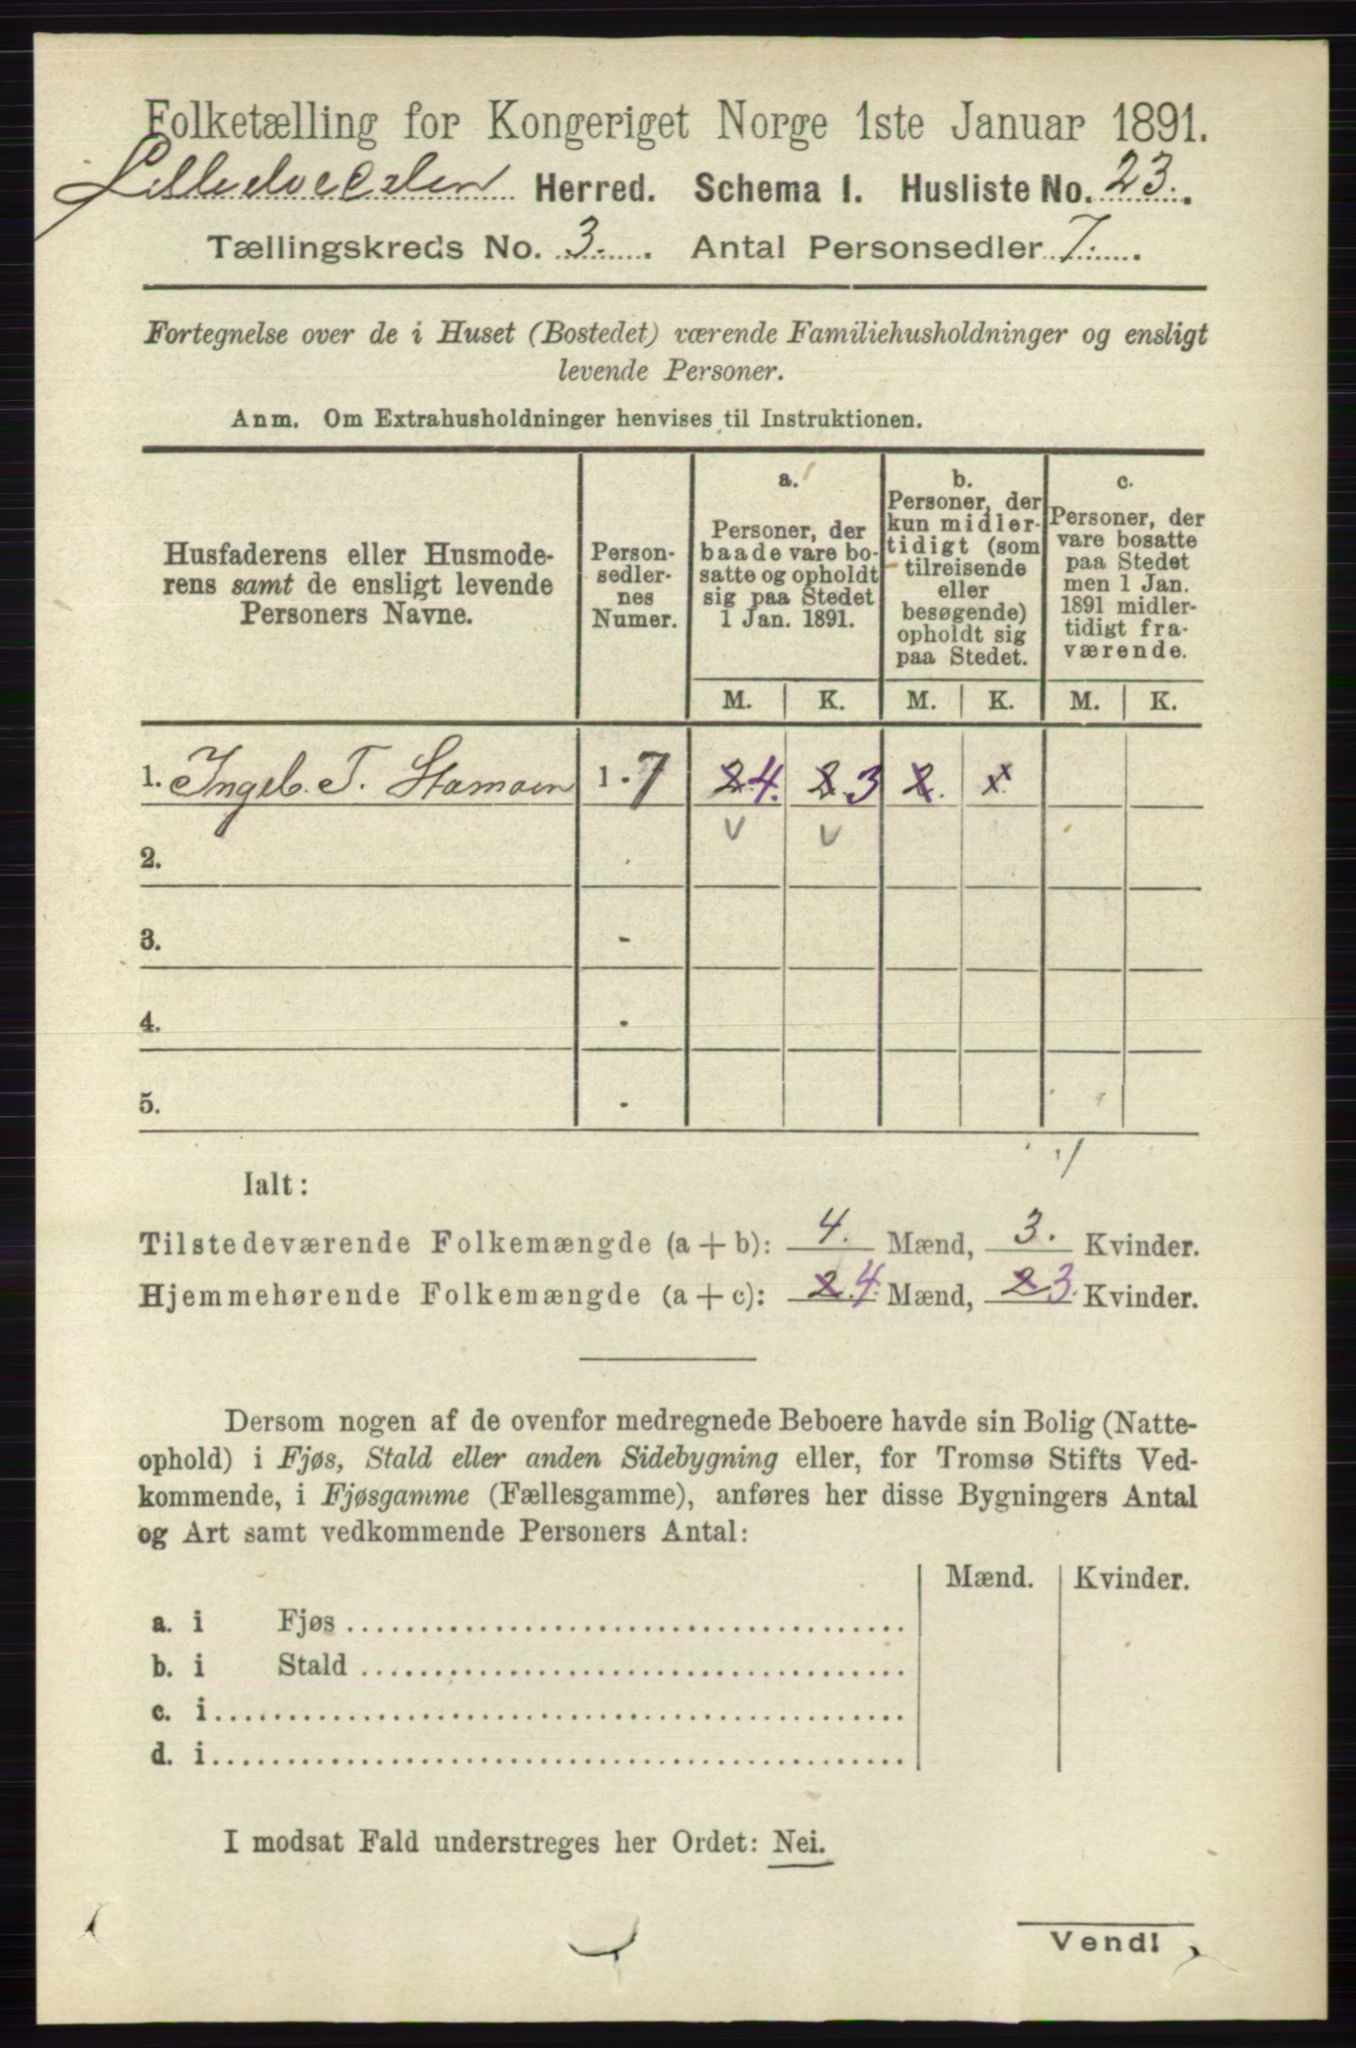 Folketælling for Kongeriget Norge 1ste Januar 1891.
Herred. Schema I. Husliste No. 23.
Tællingskreds No. 3. Antal Personsedler 7.
Fortegnelse over de i Huset (Bostedet) værende Familiehusholdninger og ensligt
levende Personer.
Anm. Om Extrahusholdninger henvises til Instruktionen.
Husfaderens eller Husmode-
rens samt de ensligt levende
Personers Navne.
Person-
sedler-
nes
Numer.
a.
Personer, der
baade vare bo-
satte og opholdt
sig paa Stedet
1 Jan. 1891.
b.
Personer, der
kun midler-
tidigt (som
tilreisende
eller
besøgende)
opholdt sig
paa Stedet.
c.
Personer, der
vare bosatte
paa Stedet
men 1 Jan.
1891 midler-
tidigt fra-
værende.
M. K. M. K. M. K.
1. Ingeb. T. 1 - 7 2 4. 2 3 2.
2.
3. -
4. -
5. -
Ialt:
Tilstedeværende Folkemængde (a + b): 4. Mænd, 3. Kvinder.
Hjemmehørende Folkemængde (a + c): 2 4. Mænd, 2 3. Kvinder.
Dersom nogen af de ovenfor medregnede Beboere havde sin Bolig (Natte-
ophold) i Fjøs, Stald eller anden Sidebygning eller, for Tromsø Stifts Ved-
kommende, i Fjøsgamme (Fællesgamme), anføres her disse Bygningers Antal
og Art samt vedkommende Personers Antal:
Mænd. Kvinder.
a. i Fjøs
b. i Stald
c. i
d. i
I modsat Fald understreges her Ordet: Nei.
Vend!